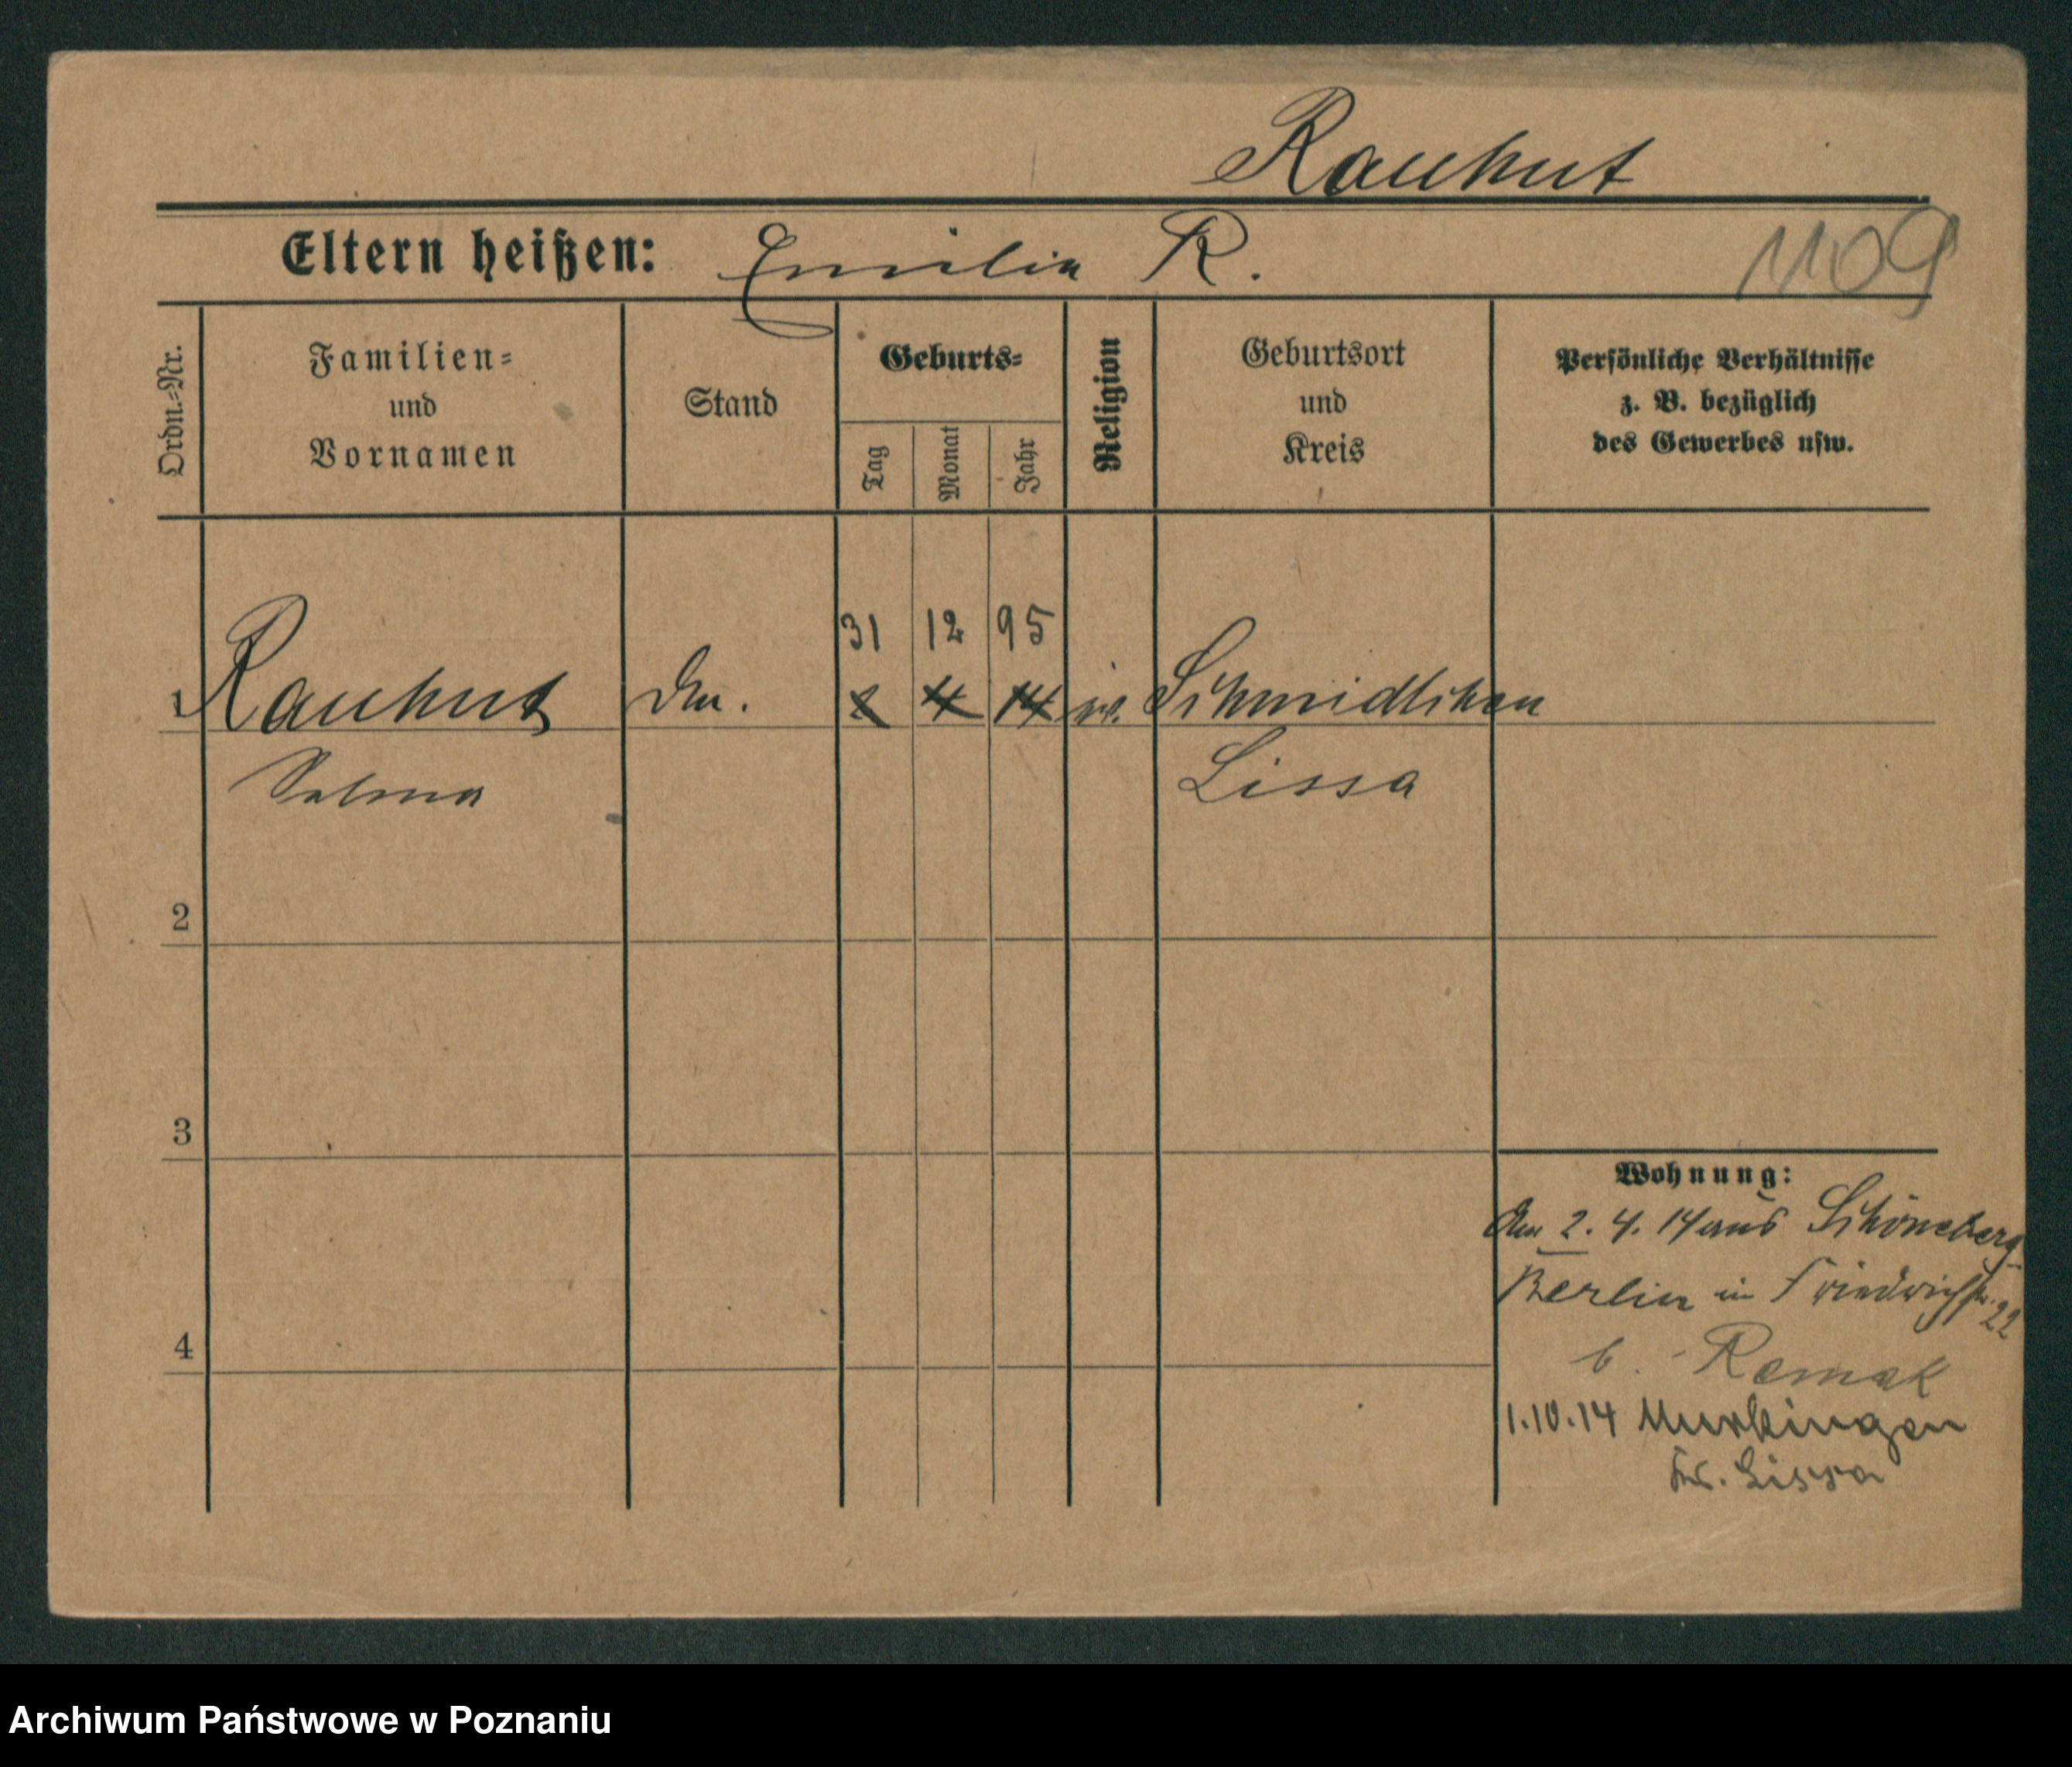 Rauhut
Eltern heißen: Emilia R.
1109
Ordn.-Nr.
Familien-
und
Vornamen
Stand
Geburts-
Tag
Monat
Jahr
Religion
Geburtsort
und
Kreis
Persönliche Verhältnisse
z. B. bezüglich
des Gewerbes usw.
31 12 95
1 Rauhut 2 4 14
Selma Lissa
2
3
4
Wohnung:
2. 4. 14 aus Schöneberg
Berlin in Friedrichstr. 22
b. Remak
1.10.14 Murkingen
Kr. Lissa
Archiwum Państwowe w Poznaniu